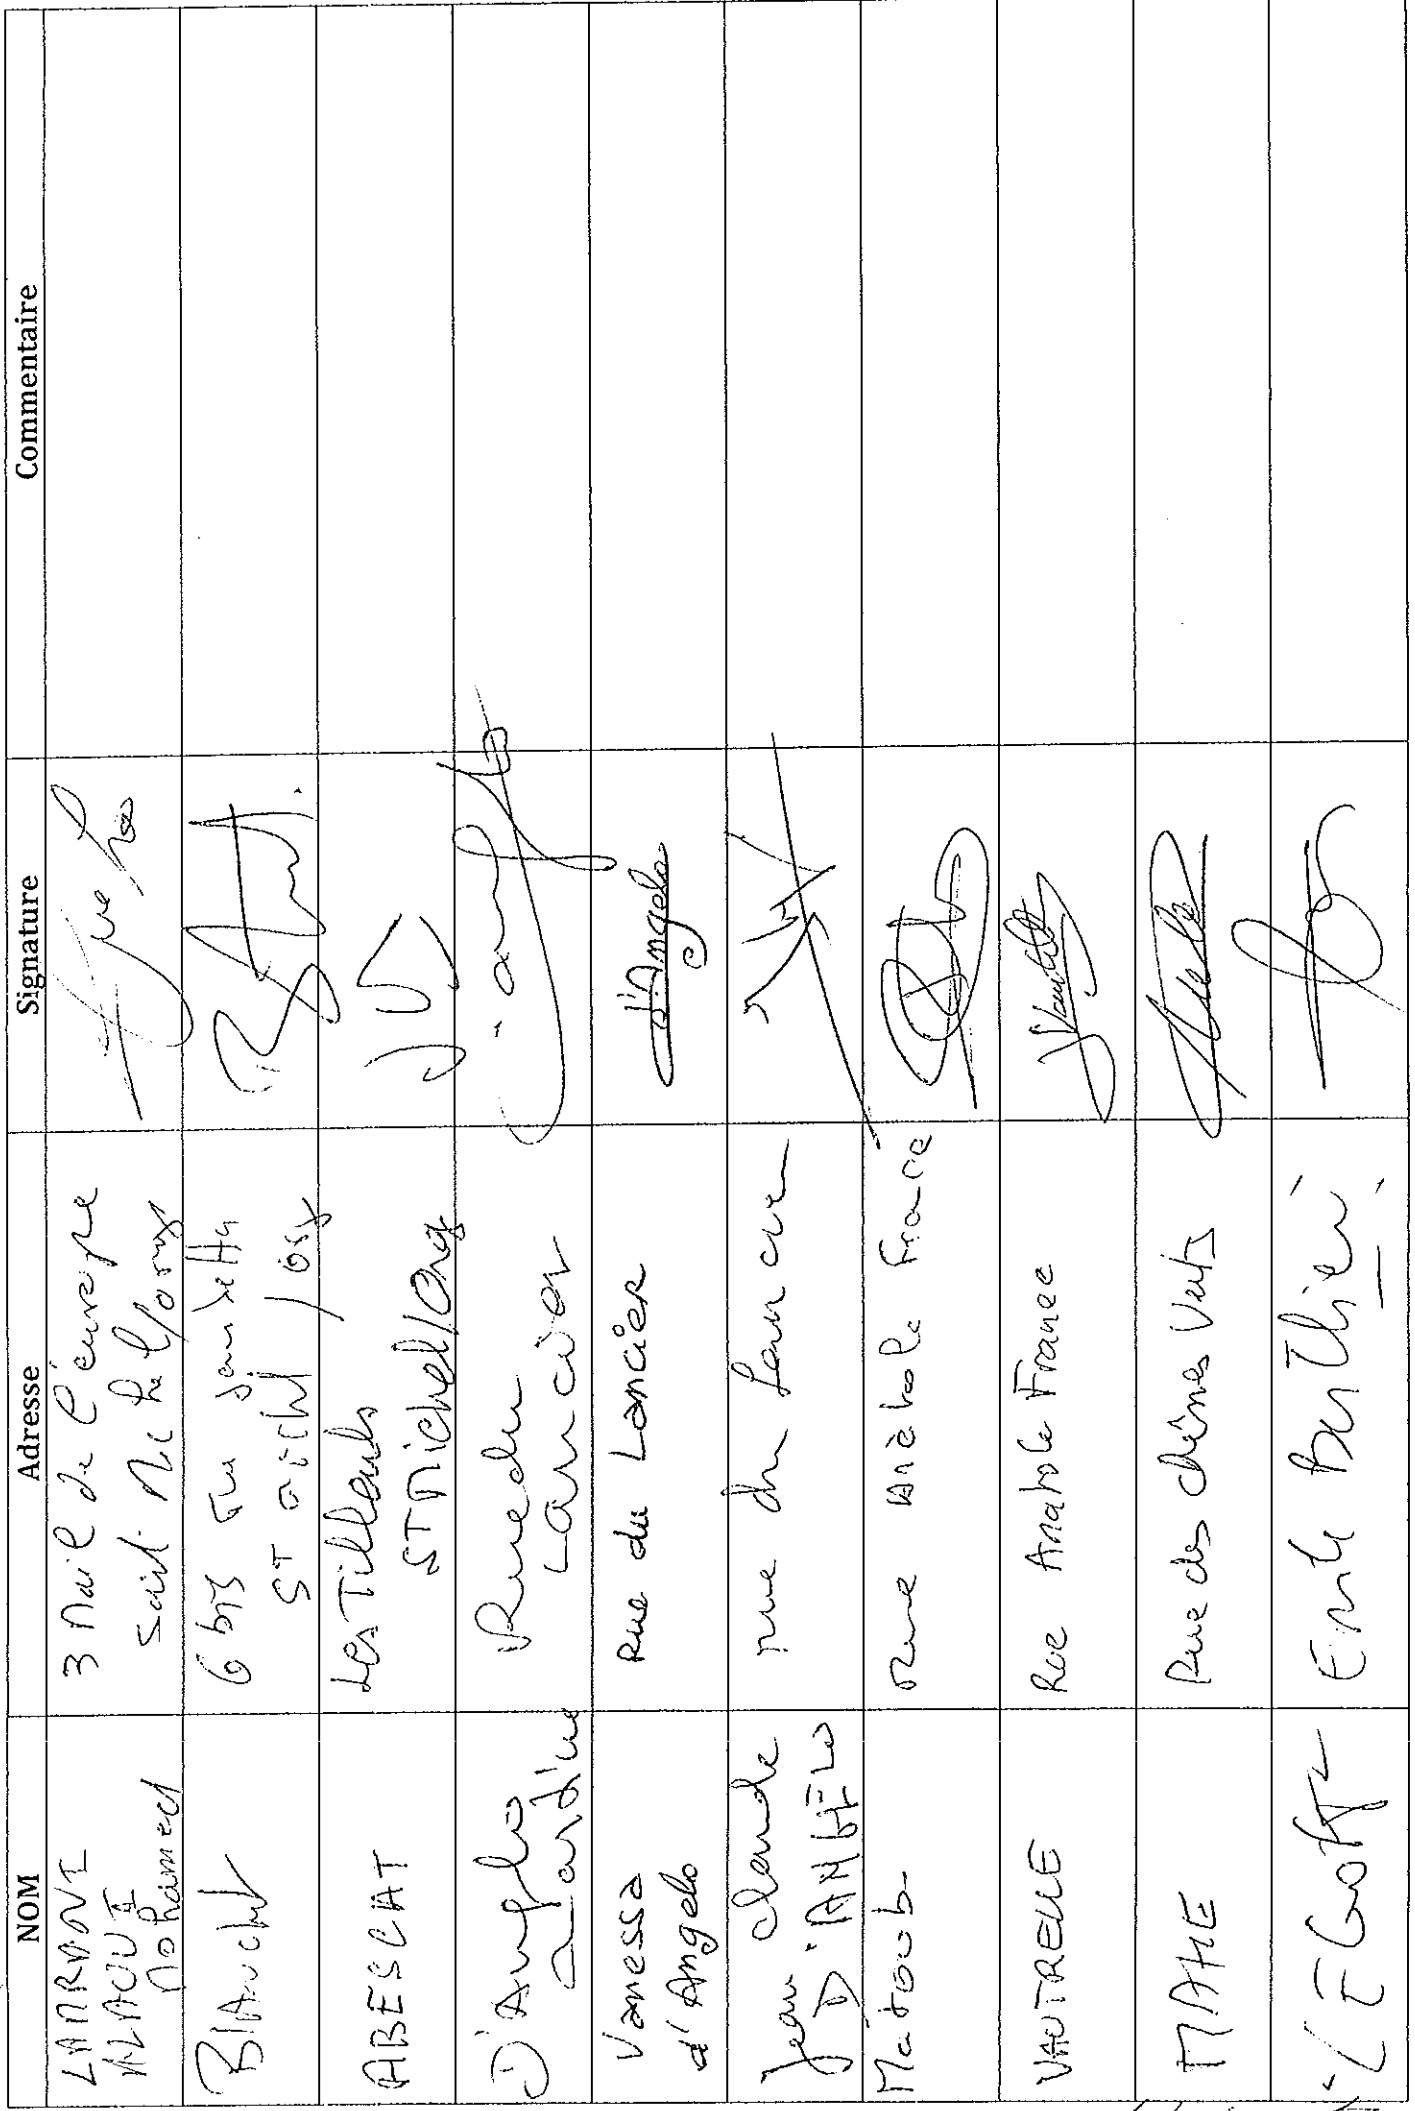 NOM Adresse Signature Commentaire
LAMRANI
ALAOUI
Mohamed
3 Mail de l'europe
Saint Michel/orge
Blanchet
6 bis rue
ST michel / orge
ABESCAT
Les Tilleuls
ST Michel/Orge
D'Angelo
Rue du
Lancier
Vanessa
d'Angelo
Rue du Lancier
d'Angelo
Jean Claude
D'ANGELO
rue du Lancier
Matoub
rue Anatole France
VAUTRELLE
Rue Anatole France
MAHE
Rue des chênes Verts
LE Goff